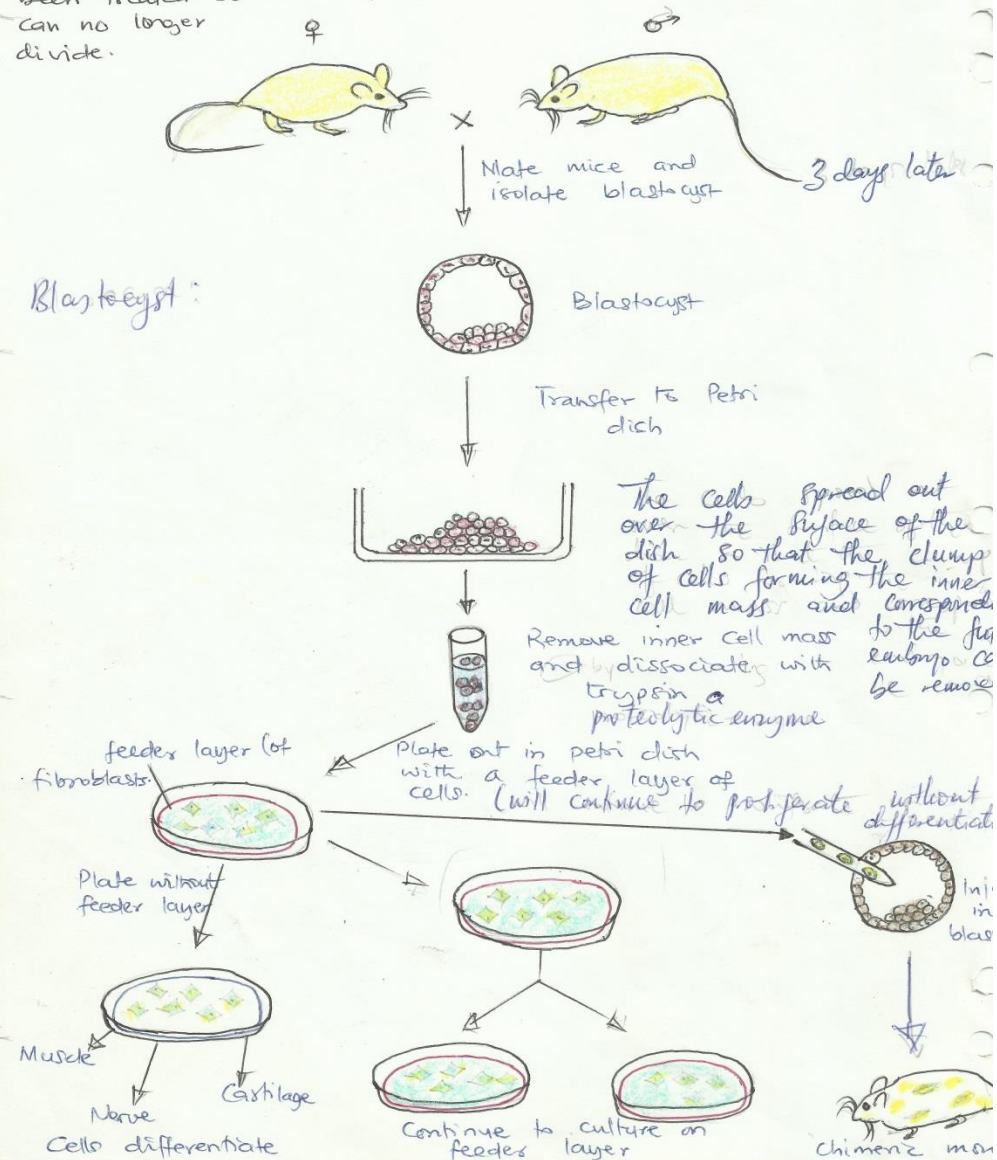 can no longer
divide.
♀ ♂
×
Mate mice and
isolate blastocyst
3 days later
Blastocyst :
Blastocyst
Transfer to Petri
dish
The cells spread out
over the surface of the
dish so that the clump
of cells forming the inner
cell mass and correspond
to the fu
embryo ca
be remove
Remove inner cell mass
and dissociate with
trypsin a
proteolytic enzyme
feeder layer (of
fibroblasts.
Plate out in petri dish
with a feeder layer of
cells. (will continue to proliferate without
differentiati
Plate without
feeder layer
Inj
in
blas
Muscle
Nerve
Cartilage
Cells differentiate
Continue to culture on
feeder layer
Chimeric mou